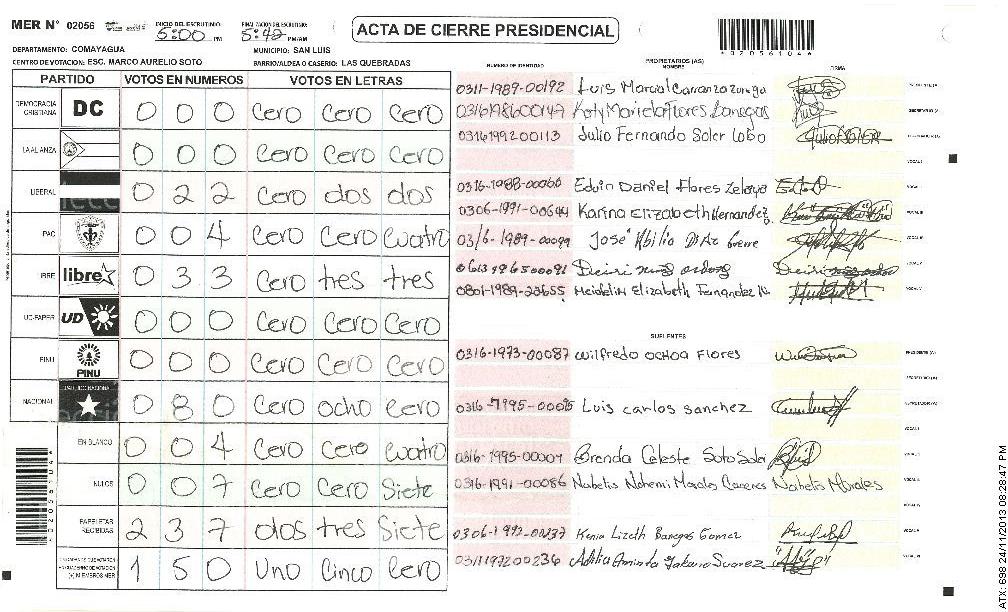 MER N° 02056
INICIO DEL ESCRUTINIO: 5:00 PM
FINALIZACION DEL ESCRUTINIO: 5:42 PM/AM
ACTA DE CIERRE PRESIDENCIAL
0 2 0 5 6 1 0 4
DEPARTAMENTO: COMAYAGUA
MUNICIPIO: SAN LUIS
CENTRO DE VOTACION: ESC. MARCO AURELIO SOTO
BARRIO/ALDEA O CASERIO: LAS QUEBRADAS
PARTIDO VOTOS EN NUMEROS VOTOS EN LETRAS
DEMOCRACIA CRISTIANA DC 0 0 0 Cero Cero Cero
LA ALIANZA 0 0 0 Cero Cero Cero
LIBERAL 0 2 2 Cero dos dos
PAC 0 0 4 Cero Cero Cuatro
LIBRE libre 0 3 3 Cero tres tres
UD-FAPER UD 0 0 0 Cero Cero Cero
PINU PINU 0 0 0 Cero Cero Cero
NACIONAL PARTIDO NACIONAL 0 8 0 Cero ocho Cero
EN BLANCO 0 0 4 Cero Cero Cuatro
NULOS 0 0 7 Cero Cero Siete
PAPELETAS RECIBIDAS 2 3 7 dos tres Siete
(+) MIEMBROS MER 1 5 0 Uno Cinco Cero
NUMERO DE IDENTIDAD
PROPIETARIOS (AS)
NOMBRE
FIRMA
0311-1989-00192 Luis Marcial Carranza Zuniga
Katy Mariela Flores Banegas
0316199200113 Julio Fernando Soler Lobo
0316-1988-00060 Edvin Daniel Flores Zelaya
0306-1991-00644 Karina Elizabeth Hernandez
0316-1989-00099 José Abilio
0801-1989-23655 Heidelin Elizabeth Fernandez
SUPLENTES
0316-1973-00087 Wilfredo Ochoa Flores
0316-1995-00095 Luis carlos sanchez
0316-1995-00007 Brenda Celeste Soto Soler
0316-1991-00086 Nabelis Nohemi Morales Caceres Nabelis Morales
0306-1992-00237 Kenia Lizeth Banegas Gomez
0311199200236 Suarez
02056104
ATX: 698 24/11/2013 08:28:47 PM